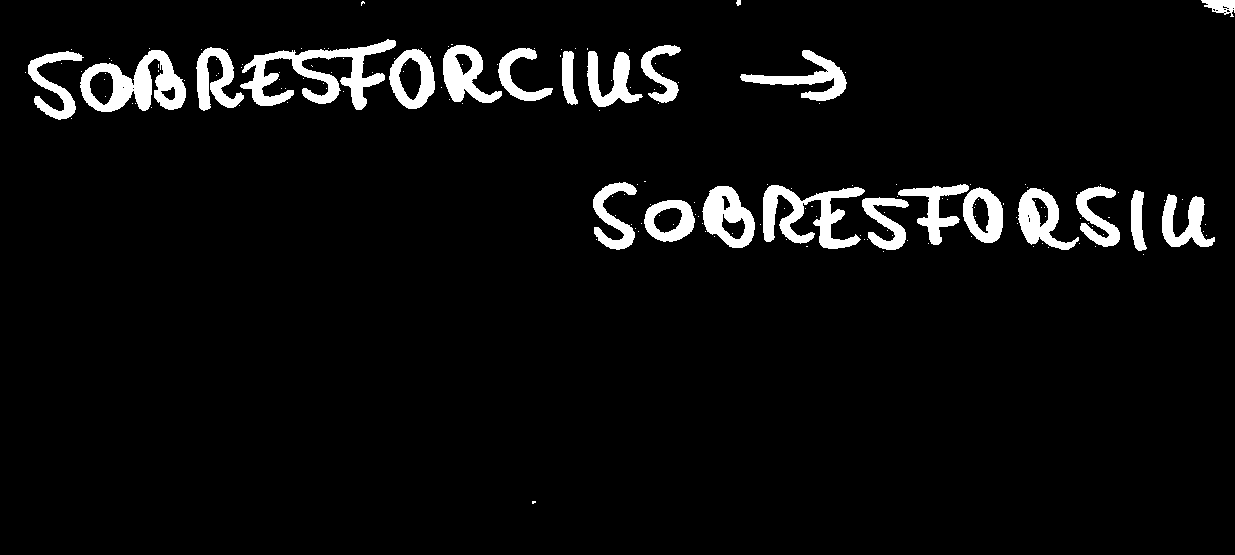 SOBRESFORCIUS →
SOBRESFORSIU